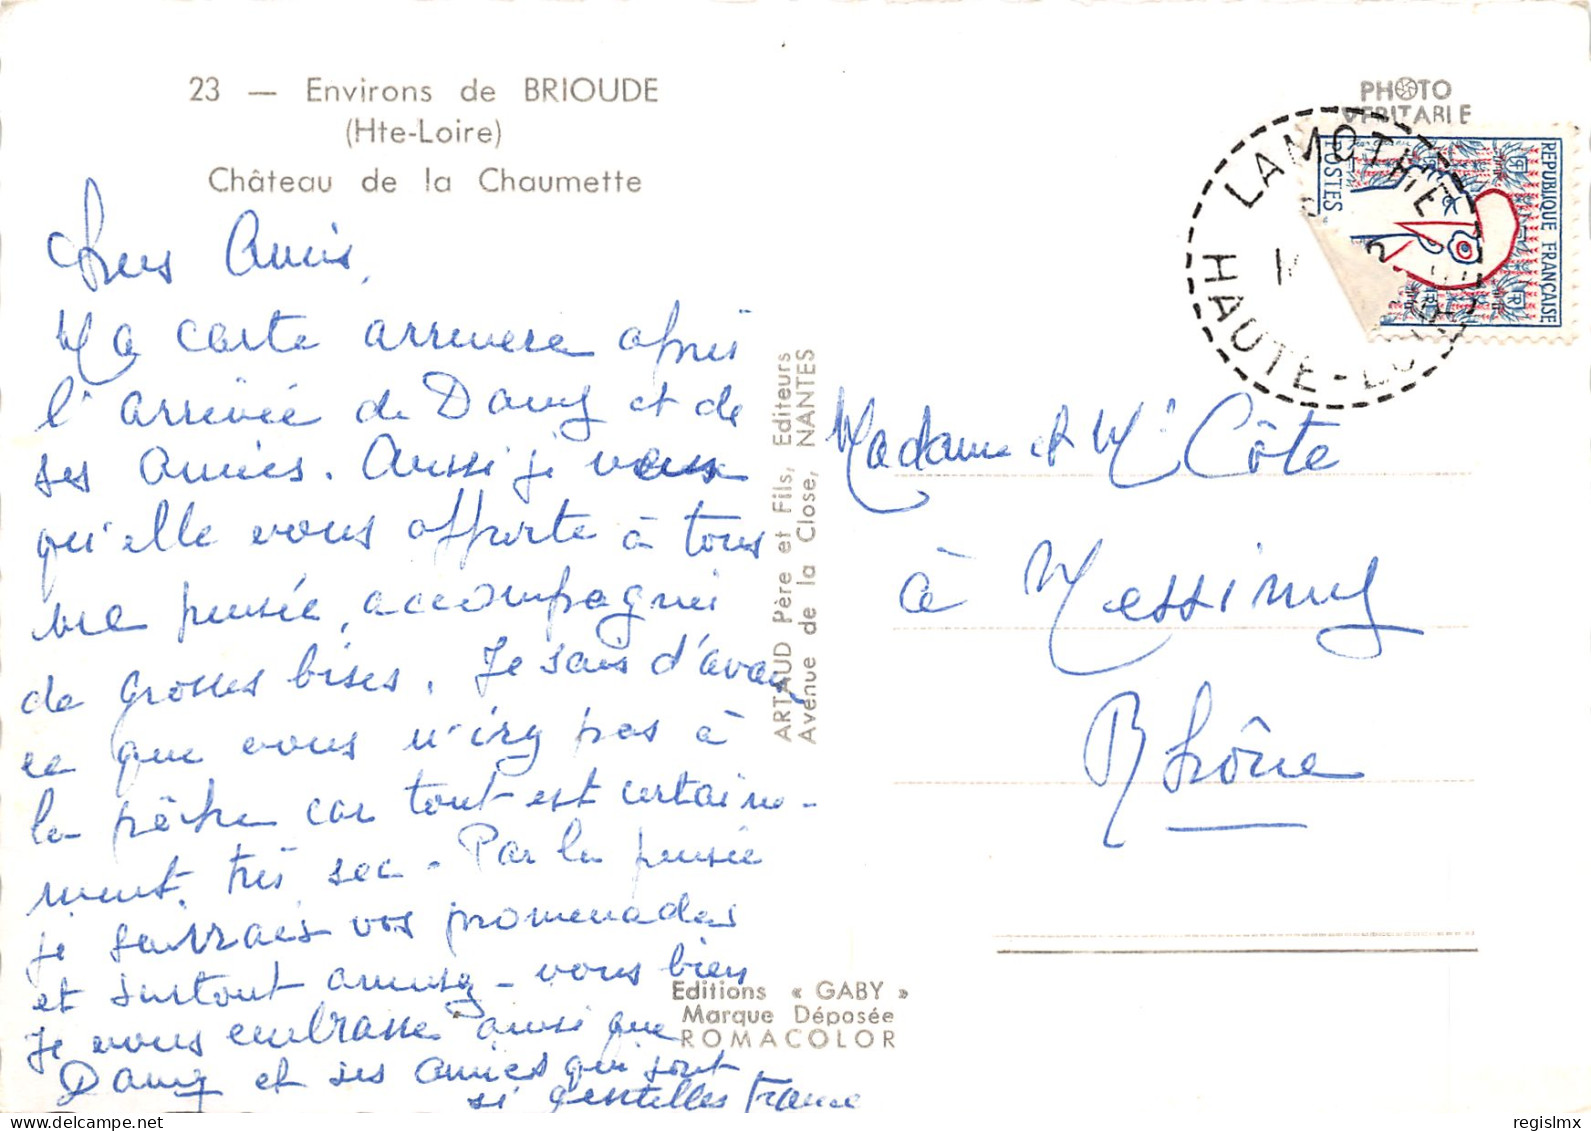 23 — Environs de BRIOUDE
(Hte-Loire)
Château de la Chaumette
Chers Amis,
Ma carte arrivera après
l'arrivée de Dany et de
ses amies. Aussi je veux
qu'elle vous apporte à tous
ma pensée, accompagnée
de grosses bises. Je sais d'avan
ce que vous n'irez pas à
la pêche car tout est certaine-
ment très sec - Par la pensée
je suivrais vos promenades
et surtout amusez-vous bien
Je vous embrasse ainsi que
Dany et ses amies qui sont
si gentilles
ARTAUD Père et Fils, Editeurs
Avenue de la Close, NANTES
Editions « GABY »
Marque Déposée
ROMACOLOR
PHOTO
VERITABLE
LAMOTHE
HAUTE-LOIRE
POSTES
REPUBLIQUE FRANÇAISE
Madame et Mr Côte
à Messimy
Rhône
regislmx